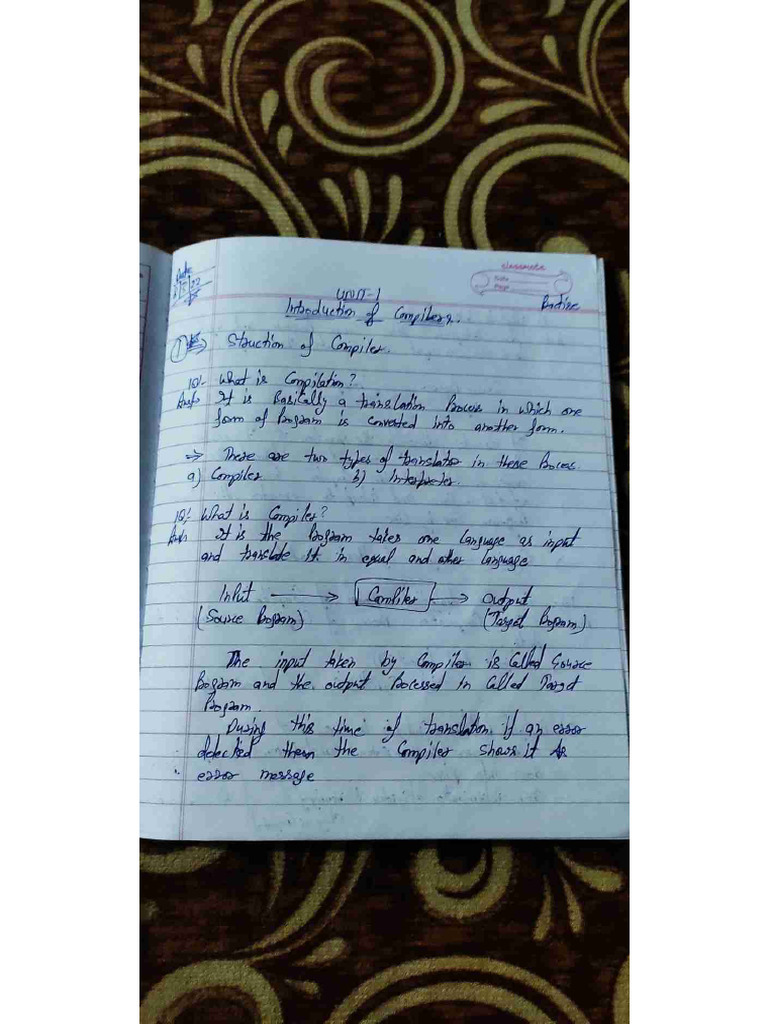 classmate
Date
Page
Date
UNIT-1
Introduction of Compilers.
① => Struction of Compiler.
1Q:- What is Compilation?
Ans:- It is Basically a translation Process in which one
form of Program is converted into another form.
=> There are two types of translator in these Process.
a) Compiler b) Interpreter.
1Q:- What is Compiler?
Ans It is the Program takes one language as input
and translate it in equal and other language
Input → Compiler → Output
(Source Program) (Target Program)
The input taken by Compiler is Called Source
Program and the output Processed in Called Target
Program.
During this time of translation, if an error
detected then the Compiler shows it as
error message